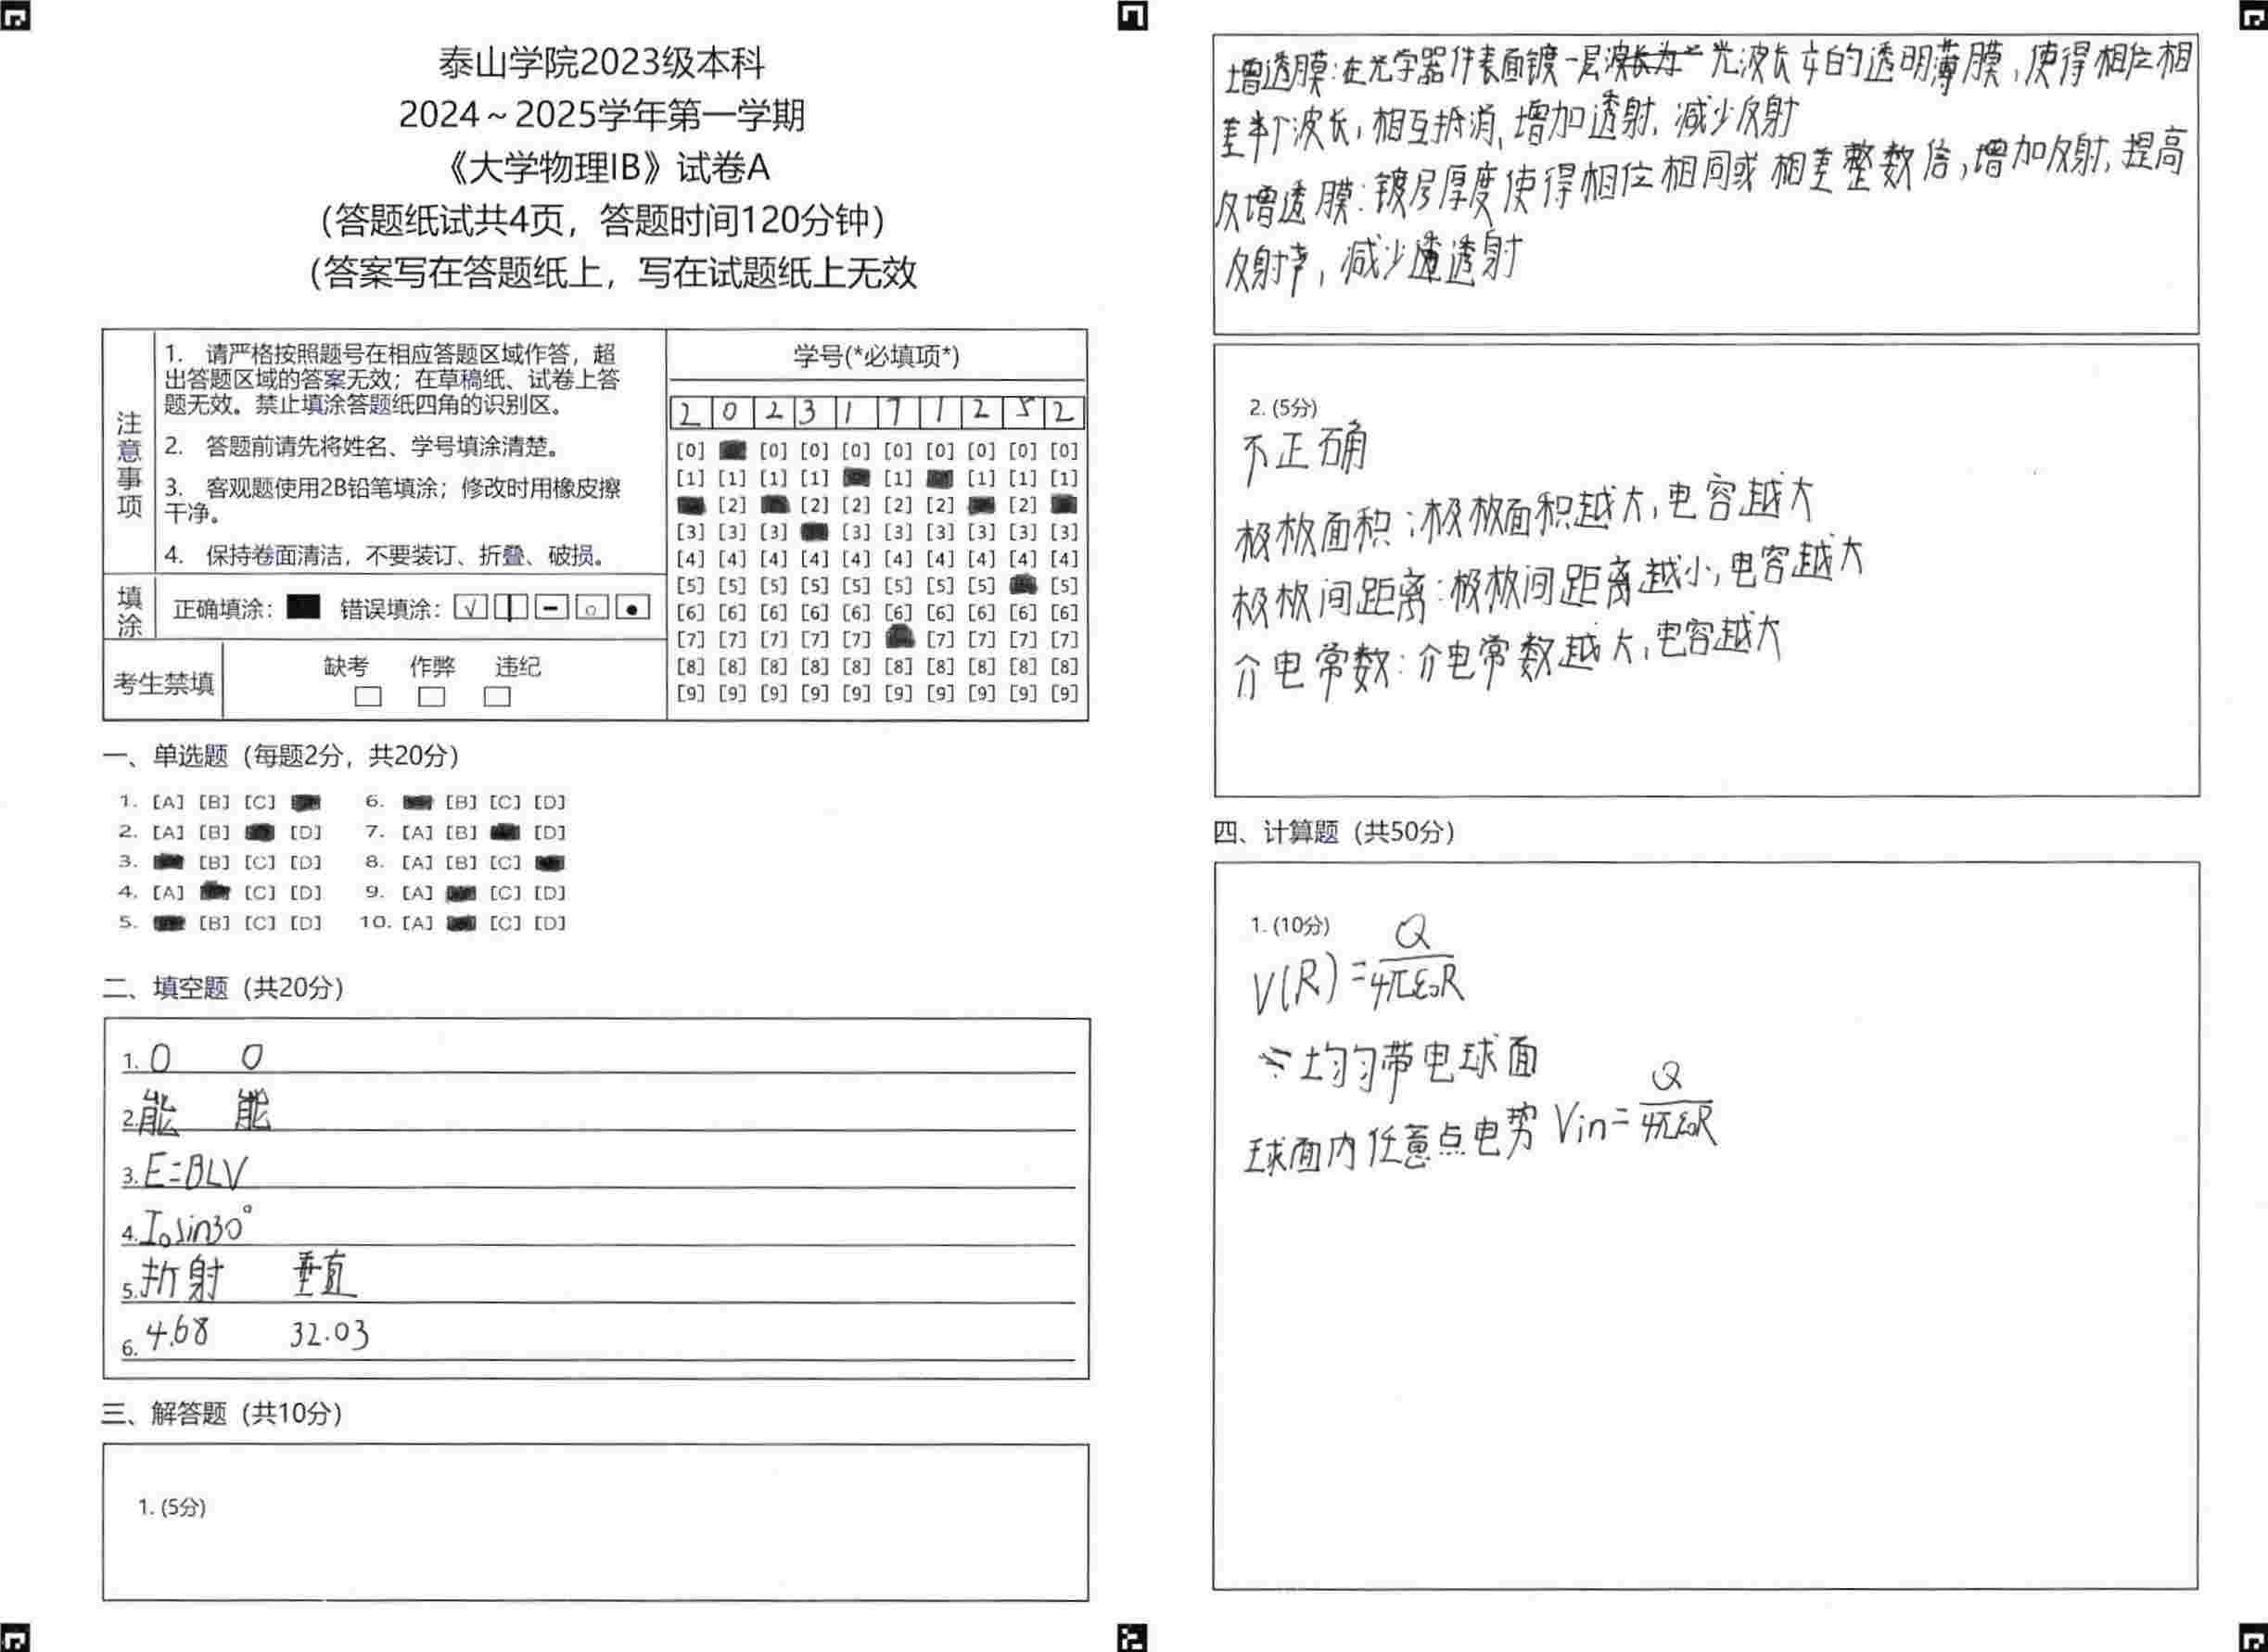 泰山学院2023级本科
2024～2025学年第一学期
《大学物理IB》试卷A
（答题纸试共4页，答题时间120分钟）
（答案写在答题纸上，写在试题纸上无效
注意事项
1. 请严格按照题号在相应答题区域作答，超
出答题区域的答案无效；在草稿纸、试卷上答
题无效。禁止填涂答题纸四角的识别区。
2. 答题前请先将姓名、学号填涂清楚。
3. 客观题使用2B铅笔填涂；修改时用橡皮擦
干净。
4. 保持卷面清洁，不要装订、折叠、破损。
填涂 正确填涂： 错误填涂：
考生禁填 缺考 作弊 违纪
学号(*必填项*)
2 0 2 3 1 7 1 2 5 2
[0] [0] [0] [0] [0] [0] [0] [0] [0]
[1] [1] [1] [1] [1] [1] [1] [1]
[2] [2] [2] [2] [2] [2]
[3] [3] [3] [3] [3] [3] [3] [3] [3]
[4] [4] [4] [4] [4] [4] [4] [4] [4] [4]
[5] [5] [5] [5] [5] [5] [5] [5] [5]
[6] [6] [6] [6] [6] [6] [6] [6] [6] [6]
[7] [7] [7] [7] [7] [7] [7] [7] [7]
[8] [8] [8] [8] [8] [8] [8] [8] [8] [8]
[9] [9] [9] [9] [9] [9] [9] [9] [9] [9]
一、单选题（每题2分，共20分）
1. [A] [B] [C] 6. [B] [C] [D]
2. [A] [B] [D] 7. [A] [B] [D]
3. [B] [C] [D] 8. [A] [B] [C]
4. [A] [C] [D] 9. [A] [C] [D]
5. [B] [C] [D] 10. [A] [C] [D]
二、填空题（共20分）
1. 0 0
2. 能 能
3. E=BLV
4. I₀sin30°
5. 折射 垂直
6. 4.68 32.03
三、解答题（共10分）
1. (5分)
增透膜：在光学器件表面镀一层光波长的透明薄膜，使得相位相
差半个波长，相互抵消，增加透射，减少反射
反增透膜：镀层厚度使得相位相同或相差整数倍，增加反射，提高
反射率，减少透射
2. (5分)
不正确
极板面积：极板面积越大，电容越大
极板间距离：极板间距离越小，电容越大
介电常数：介电常数越大，电容越大
四、计算题（共50分）
1. (10分)
V(R)=Q/4πε₀R
∵均匀带电球面
球面内任意点电势 Vin=Q/4πε₀R